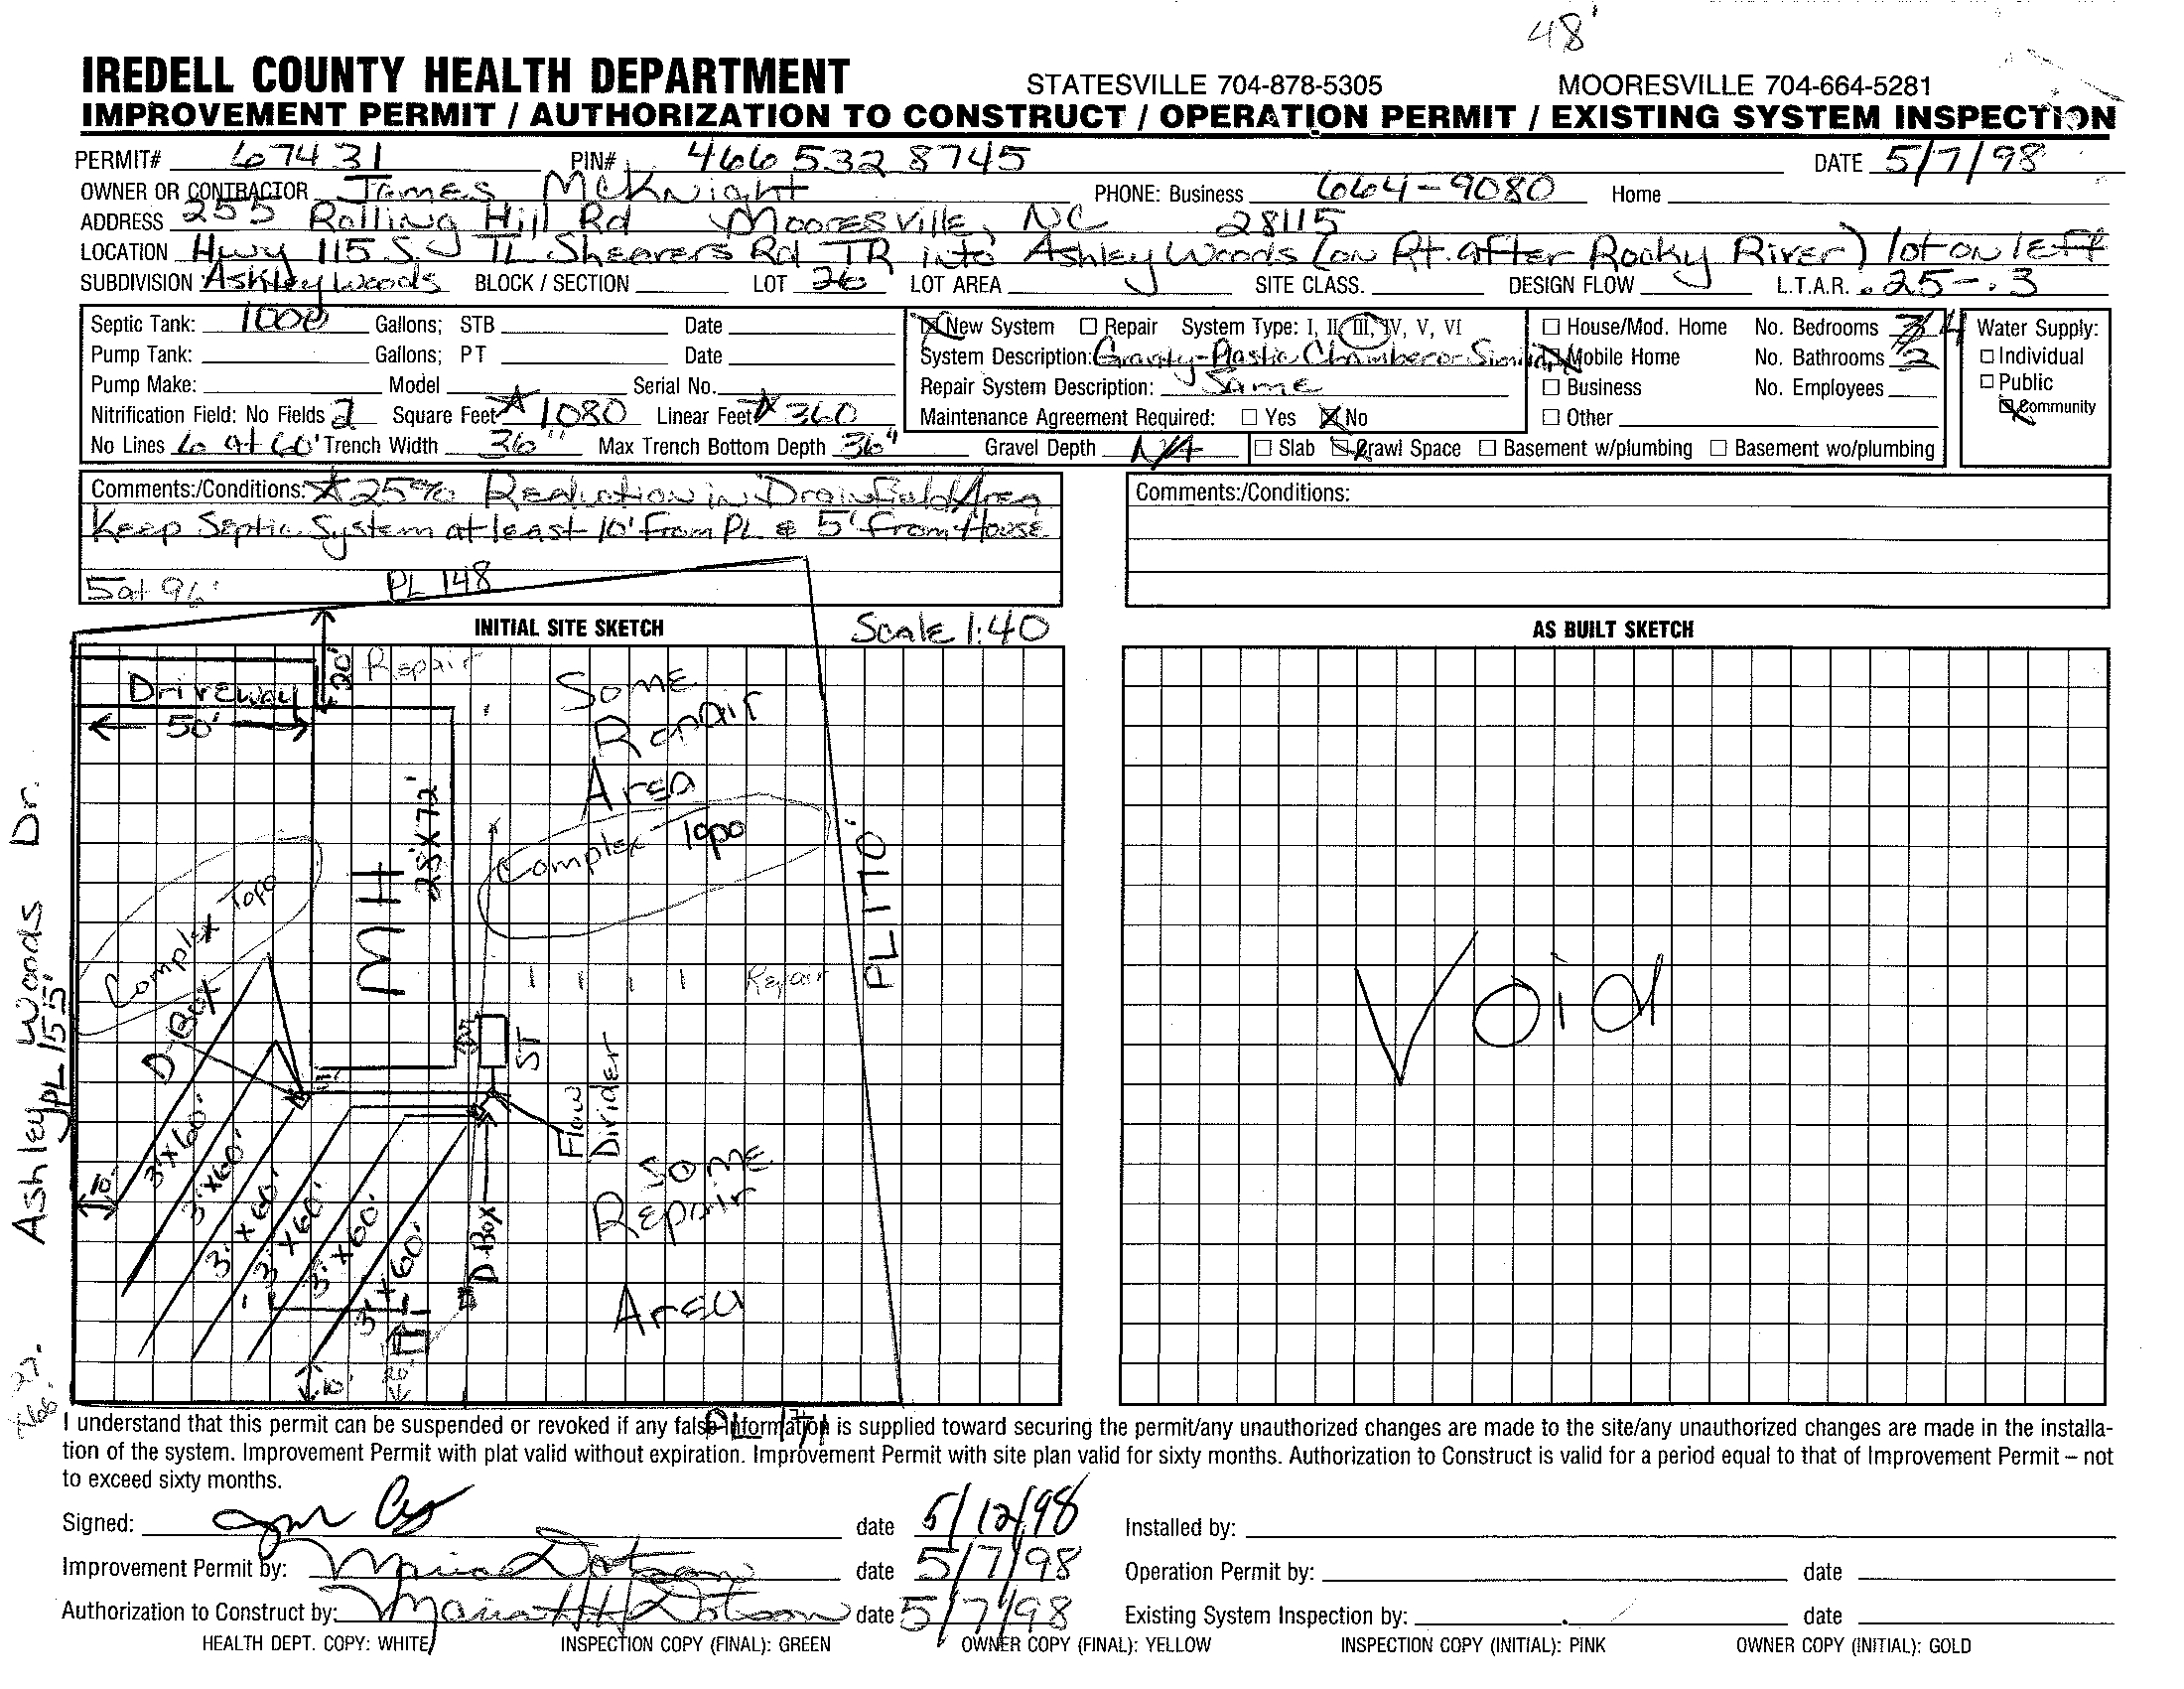 48'
IREDELL COUNTY HEALTH DEPARTMENT STATESVILLE 704-878-5305 MOORESVILLE 704-664-5281
IMPROVEMENT PERMIT / AUTHORIZATION TO CONSTRUCT / OPERATION PERMIT / EXISTING SYSTEM INSPECTION
PERMIT# 67431 PIN# 466 532 8745 DATE 5/7/98
OWNER OR CONTRACTOR James McKnight PHONE: Business 664-9080 Home
ADDRESS 255 Rolling Hill Rd Mooresville, NC 28115
LOCATION Hwy 115 S. TL Shearers Rd TR into Ashley Woods (on Rt. after Rocky River) lot on left
SUBDIVISION Ashley Woods BLOCK / SECTION LOT 26 LOT AREA SITE CLASS. DESIGN FLOW L.T.A.R. .25-.3
Septic Tank: 1000 Gallons; STB Date
Pump Tank: Gallons; PT Date
Pump Make: Model Serial No.
Nitrification Field: No Fields 2 Square Feet 1080 Linear Feet 360
No Lines 6 at 60' Trench Width 36" Max Trench Bottom Depth 36" Gravel Depth N/A
New System Repair System Type: I, II, III, IV, V, VI
System Description: Gravity-Plastic Chamber or Similar
Repair System Description: Same
Maintenance Agreement Required: Yes No
House/Mod. Home No. Bedrooms 4
Mobile Home No. Bathrooms 2
Business No. Employees
Other
Slab Crawl Space Basement w/plumbing Basement wo/plumbing
Water Supply:
Individual
Public
Community
Comments:/Conditions: 25% Reduction in Drainfield Area
Keep Septic System at least 10' from PL & 5' from House
5 at 96'
PL 148
Comments:/Conditions:
INITIAL SITE SKETCH Scale 1:40
AS BUILT SKETCH
Driveway
50'
20'
Repair
Some
Repair
Area
Complex Topo
MH
28'X72'
Complex Topo
PL 170'
Repair
D-Box
ST
Flow
Divider
Ashley Woods Dr.
PL 155'
10'
3'X60'
3'X60'
3'X60'
3'X60'
3'X60'
3'X60'
D-Box
Some
Repair
Area
10'
20'
Void
I understand that this permit can be suspended or revoked if any false information is supplied toward securing the permit/any unauthorized changes are made to the site/any unauthorized changes are made in the installa-
tion of the system. Improvement Permit with plat valid without expiration. Improvement Permit with site plan valid for sixty months. Authorization to Construct is valid for a period equal to that of Improvement Permit – not
to exceed sixty months.
Signed: date 5/12/98 Installed by:
Improvement Permit by: date 5/7/98 Operation Permit by: date
Authorization to Construct by: date 5/7/98 Existing System Inspection by: date
HEALTH DEPT. COPY: WHITE INSPECTION COPY (FINAL): GREEN OWNER COPY (FINAL): YELLOW INSPECTION COPY (INITIAL): PINK OWNER COPY (INITIAL): GOLD